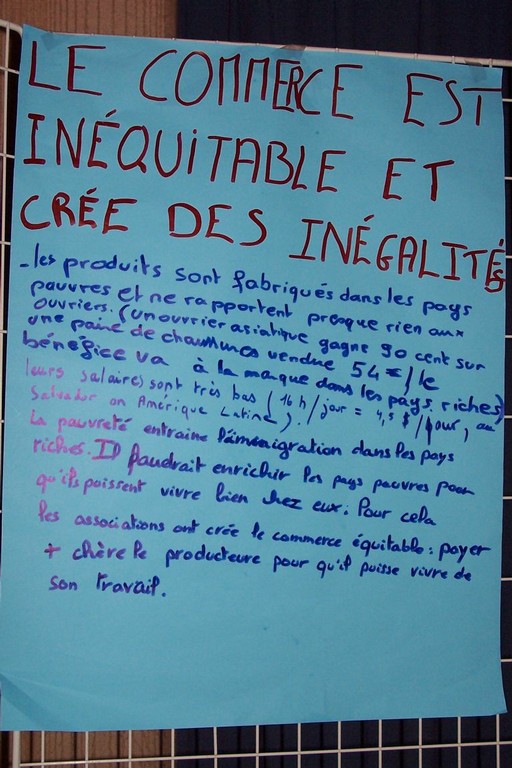 LE COMMERCE EST
INÉQUITABLE ET
CRÉE DES INÉGALITÉS
-les produits sont fabriqués dans les pays
pauvres et ne rapportent presque rien aux
ouvriers. (un ouvrier asiatique gagne 90 cent sur
une paire de chaussures vendue 54€/le
bénéfice va à la marque dans les pays riches)
leurs salaires sont très bas (16h/jour = 4,5 $/jour, au
Salvador en Amérique Latine).
la pauvreté entraine l'émmigration dans les pays
riches. Il faudrait enrichir les pays pauvres pour
qu'ils puissent vivre bien chez eux. Pour cela
les associations ont crée le commerce équitable: payer
+ chère le producteure pour qu'il puisse vivre de
son travail.